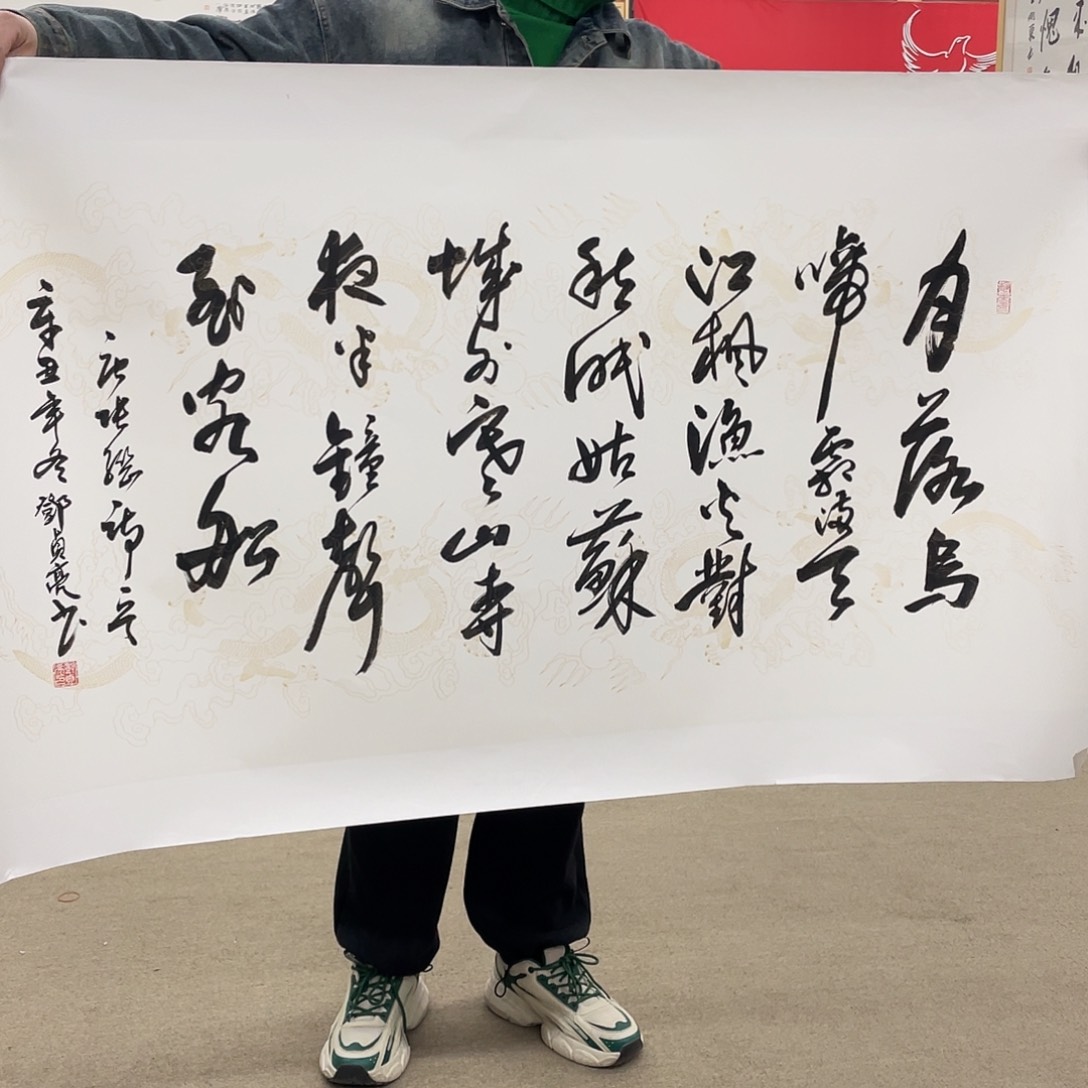 月落烏
啼霜滿天
江楓漁火對
愁眠姑蘇
城外寒山寺
夜半鐘聲
到客船
唐張繼詩
辛丑年冬鄧貞亮书
愧